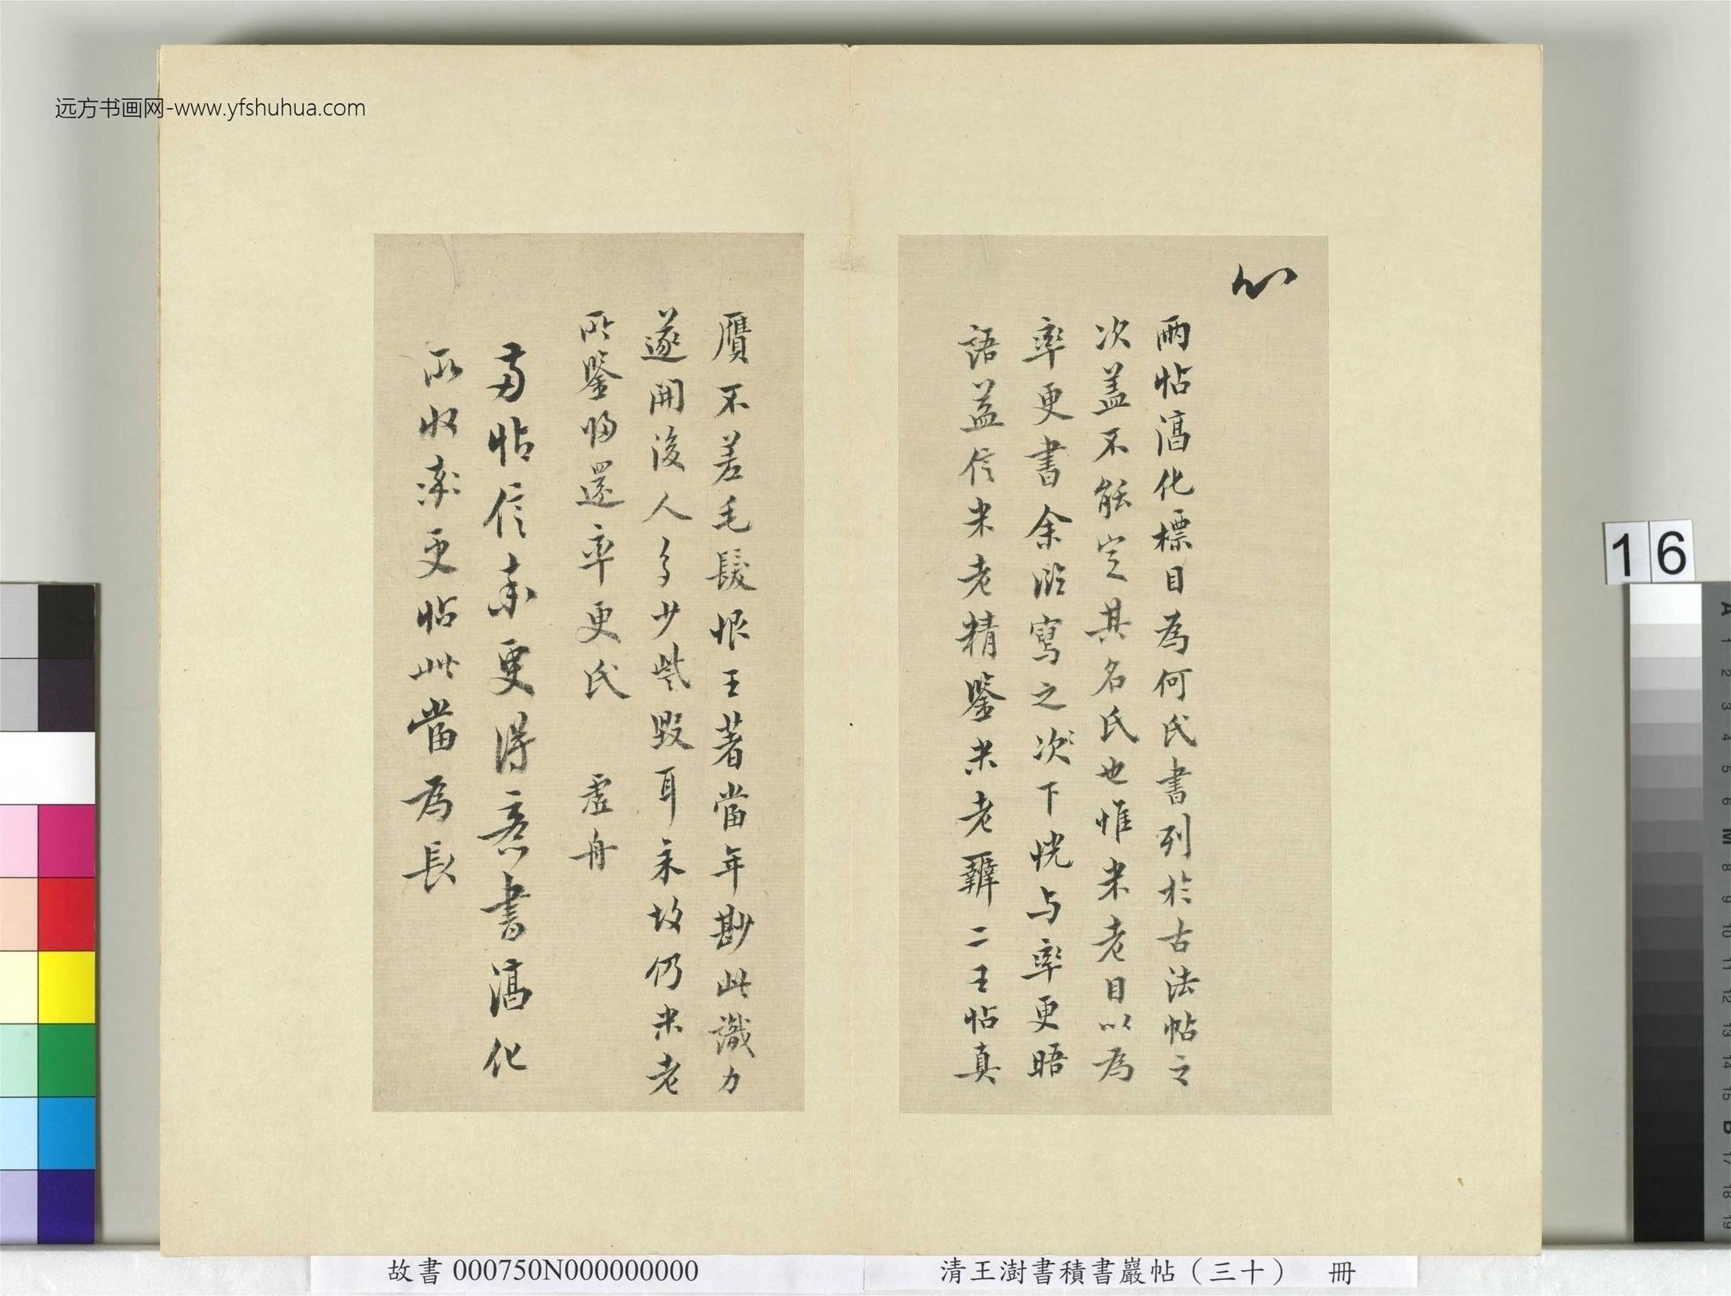 远方书画网-www.yfshuhua.com
心
兩帖淳化標目為何氏書列於古法帖之
次蓋不能定其名氏也惟米老目以為
率更書余臨寫之次下恍与率更晤
語益信米老精鑒米老辨二王帖真
贋不差毛髮恨王著當年尠此識力
遂開後人多少訾毀耳余故仍米老
所鑒歸還率更氏 虛舟
两帖信率更得意書淳化
所收率更帖此當為長
16
故書 000750N000000000
清王澍書積書巖帖（三十） 冊